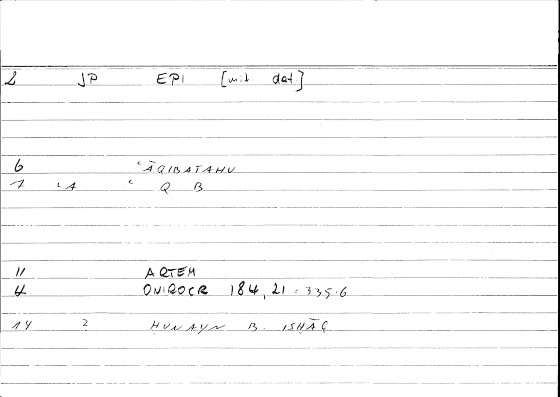 2 JP EPI [mit dat]
6 ʿĀQIBATAHU
7 ʿA ʿ Q B
11 ARTEM
4 ONIROCR 184, 21 = 335.6
14 2 HUNAYN B. ISHĀQ